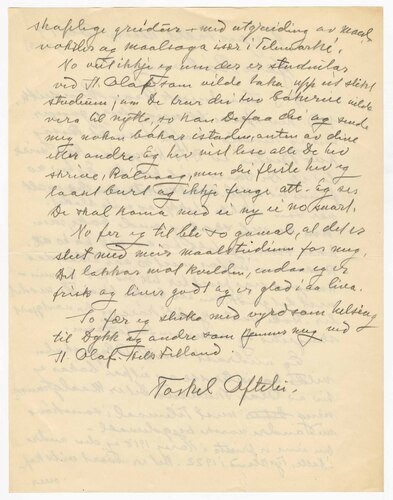 skaplege greidur + med utgreiding av maal
vokster og maalsoga iser i Telemarki.
No veit ikkje eg um der er studentar
ved St Olaf som vilde taka upp eit slikt
studium, um De trur dei tvo bøkerne vilde
vera til nytte, so kan De faa dei og sende
meg nokon bøker istaden, anten av dine
eller andre. Eg hev vist lese alle De hev
skrive, Rølvaag, men dei fleste hev eg
laant burt og ikkje fenge att. Eg ser
De skal koma med ei ny ei no snart.
No fer eg til bli so gamal, at det er
slutt med meir maalstudium for meg.
Det lakkar mot kvelden, endaa eg er
frisk og liver godt og er glad i aa liva.
To fær eg slutta med vyrdsam helsing
til Dykk og andre som kjenner meg ved
St Olaf.
Torkel Oftelie.